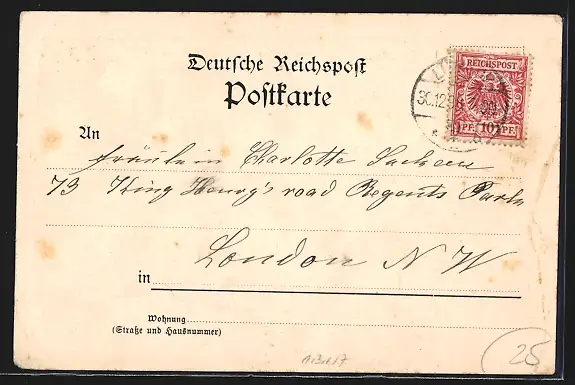 Deutsche Reichspost
Postkarte
REICHSPOST
10 PF. 10 PF.
30.12.
An
Fräulein Charlotte Sachsen
73 King Henry's road Regents Park
London N W
in
Wohnung
(Straße und Hausnummer)
25